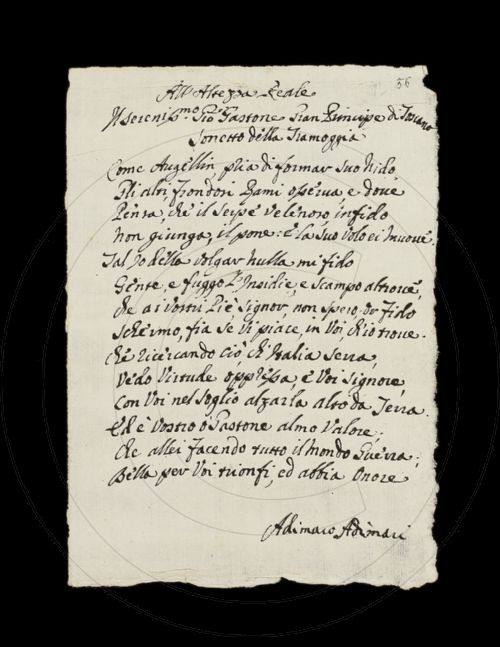 56
All' Altezza Reale
Il Sereniss.mo Gio Gastone Gran Principe di Toscana
Sonetto della Tramoggia
Come Augellin, pria di formar suo Nido,
Gli altri frondosi Rami osserva, e dove
Pensa, ch'è il Serpe velenoso, infido
Non giunga, il pone: e là suo volo ei muove.
Tal Io della volgar nulla mi fido
Gente, e fuggo l'Insidie, e scampo altrove,
che a i vostri Piè Signor, non spero
schermo, fia se Vi piace, in Voi, ch'io trove.
Che ricercando ciò ch'Italia serra,
Vedo Virtude oppressa, e Voi Signore,
Con Voi nel Soglio alzarla alto da Terra.
Ed è Vostro ò Gastone almo Valore;
Che allei facendo tutto il mondo Guerra;
Bella per Voi trionfi, ed abbia Onore
Adimaro Adimari